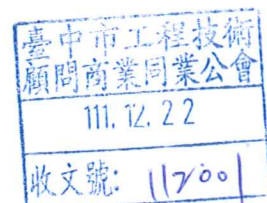 臺中市工程技術
顧問商業同業公會
111.12.22
收文號: 112001